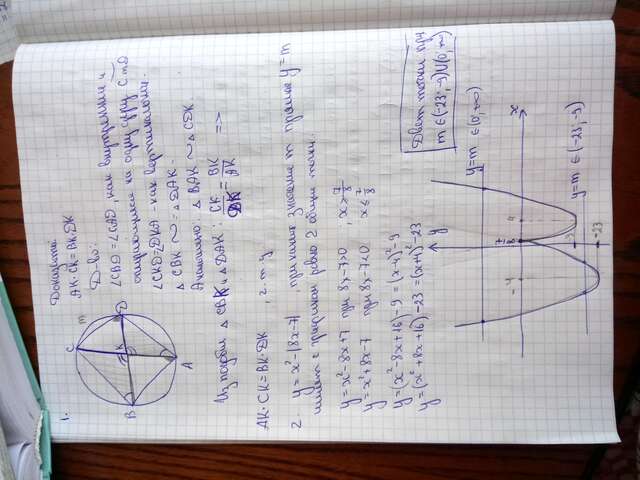 1.
C
m
B
K
D
A
Доказать:
AK·CK=BK·DK
Д-во:
∠CBD=∠CAD, как внутренние и
опирающиеся на одну дугу CmD
∠CKB=∠DKA - как вертикальные.
△CBK ∾ △DAK.
Аналогично: △BAK ∾ △CDK.
Из подобия △CBK и △DAK: CK/DK = BK/AK =>
AK·CK=BK·DK, ч.т.д
2. y=x²-|8x-7|, при каких значениях m прямая y=m
имеет с графиком ровно 2 общие точки.
y=x²-8x+7 при 8x-7>0, x>7/8
y=x²+8x-7 при 8x-7<0 x≤7/8
y=(x²-8x+16)-9=(x-4)²-9
y=(x²+8x+16)-23=(x+4)²-23
Две точки при
m∈(-23;-9)∪(0;∞)
y
x
y=m ∈(0;+∞)
-4
7/8
4
-9
-23
y=m ∈(-23;-9)